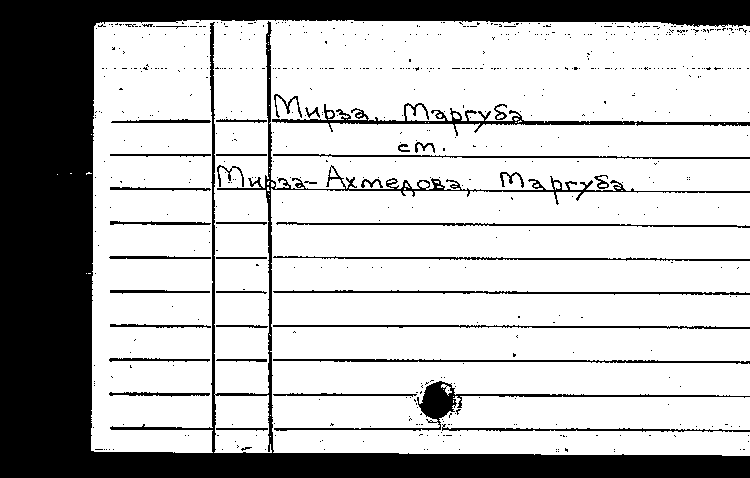 Мирза, Маргуба
см.
Мирза-Ахмедова, Маргуба.